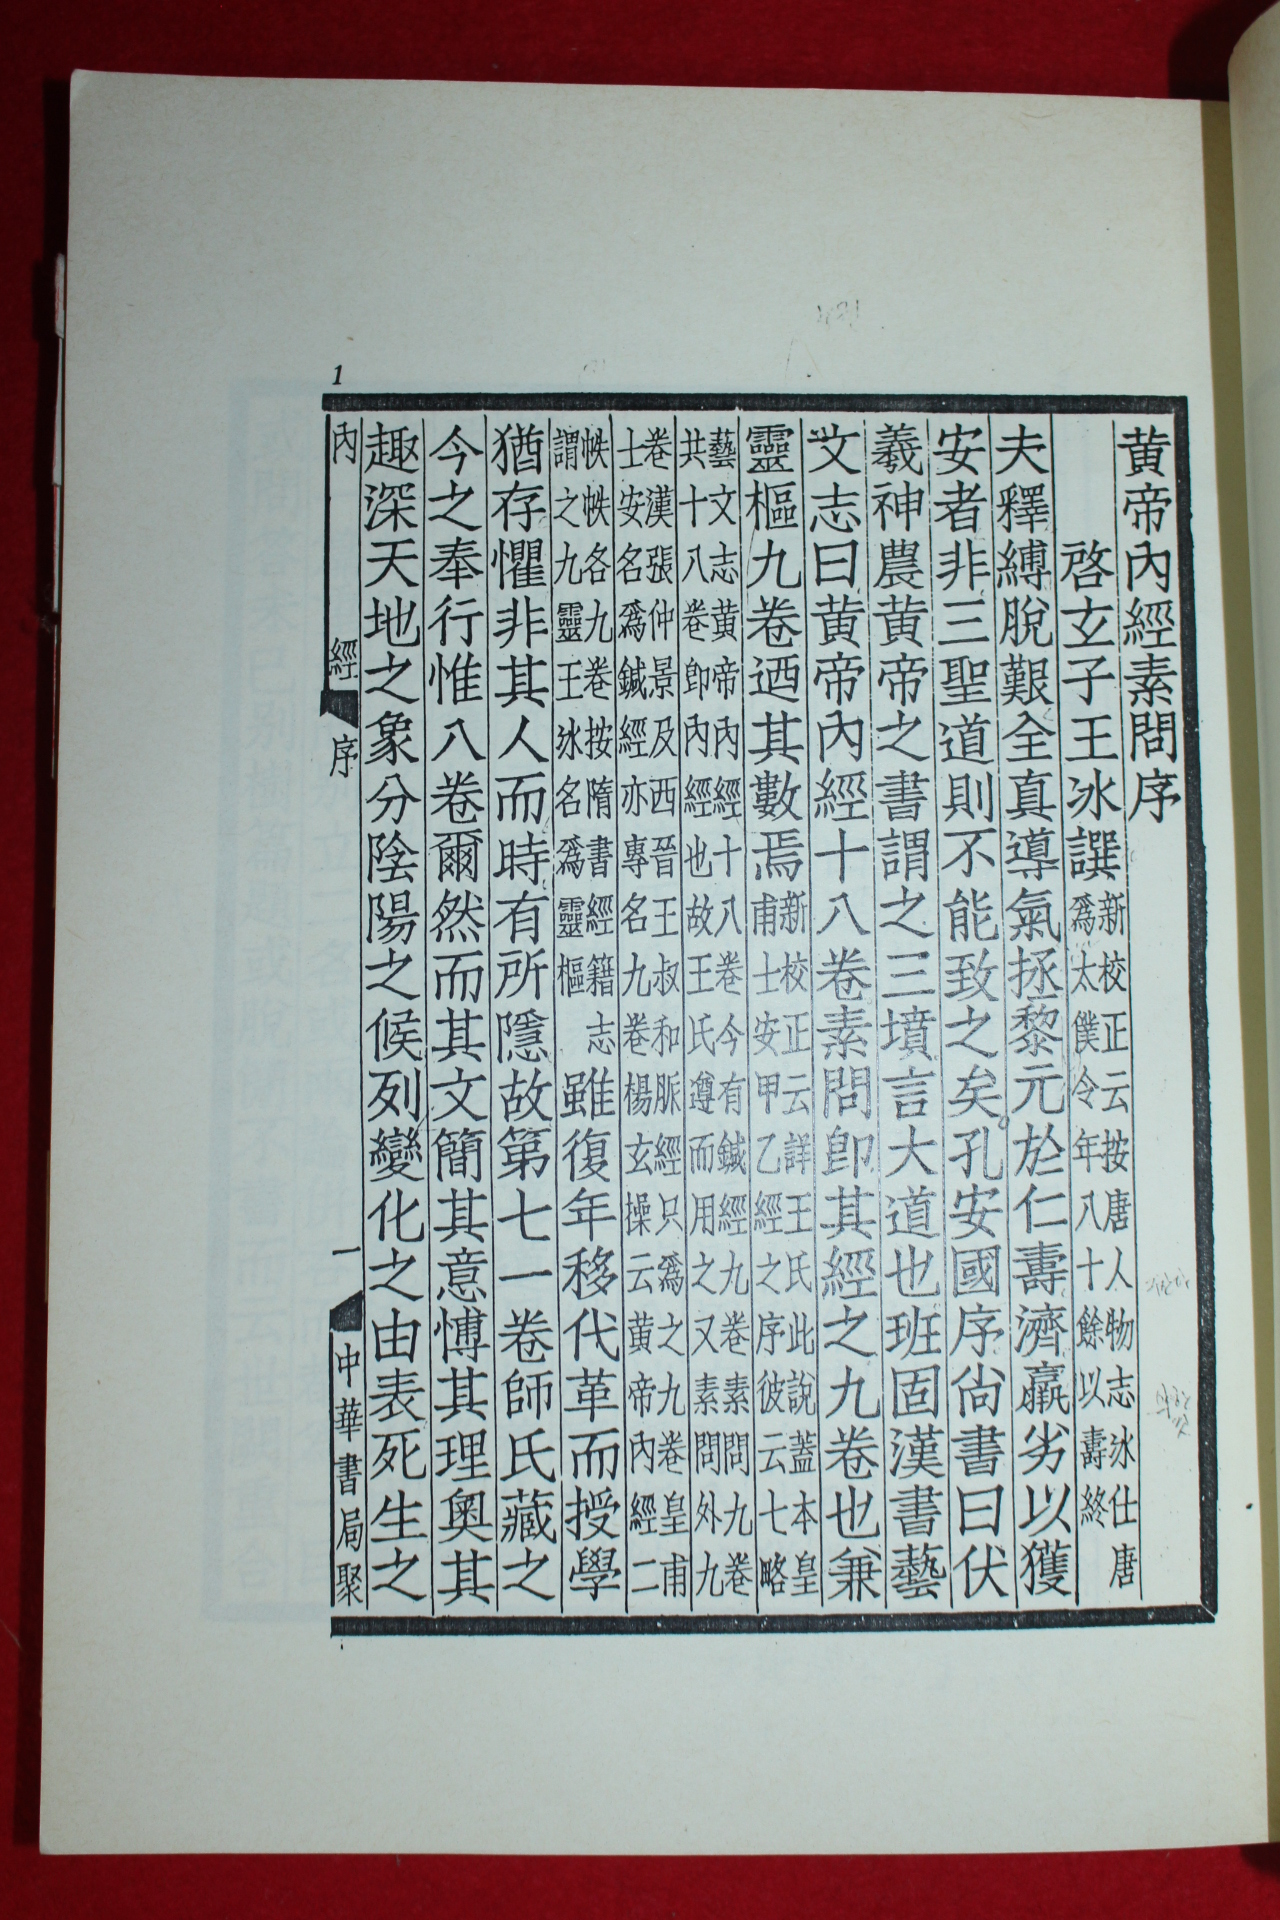 黃帝內經素問序
啓玄子王冰譔
新校正云按唐人物志冰仕唐
爲太僕令年八十餘以壽終
夫釋縛脫艱全真導氣拯黎元於仁壽濟羸劣以獲
安者非三聖道則不能致之矣孔安國序尙書曰伏
羲神農黃帝之書謂之三墳言大道也班固漢書藝
文志曰黃帝內經十八卷素問卽其經之九卷也兼
靈樞九卷迺其數焉
新校正云詳王氏此說蓋本皇
甫士安甲乙經之序彼云七略
藝文志黃帝內經十八卷今有鍼經九卷素問九卷
共十八卷卽內經也故王氏遵而用之又素問外九
卷漢張仲景及西晉王叔和脈經只爲之九卷皇甫
士安名爲鍼經亦專名九卷楊玄操云黃帝內經二
帙帙各九卷按隋書經籍志
謂之九靈王冰名爲靈樞
雖復年移代革而授學
猶存懼非其人而時有所隱故第七一卷師氏藏之
今之奉行惟八卷爾然而其文簡其意博其理奧其
趣深天地之象分陰陽之候列變化之由表死生之
內經 序 一 中華書局聚
1